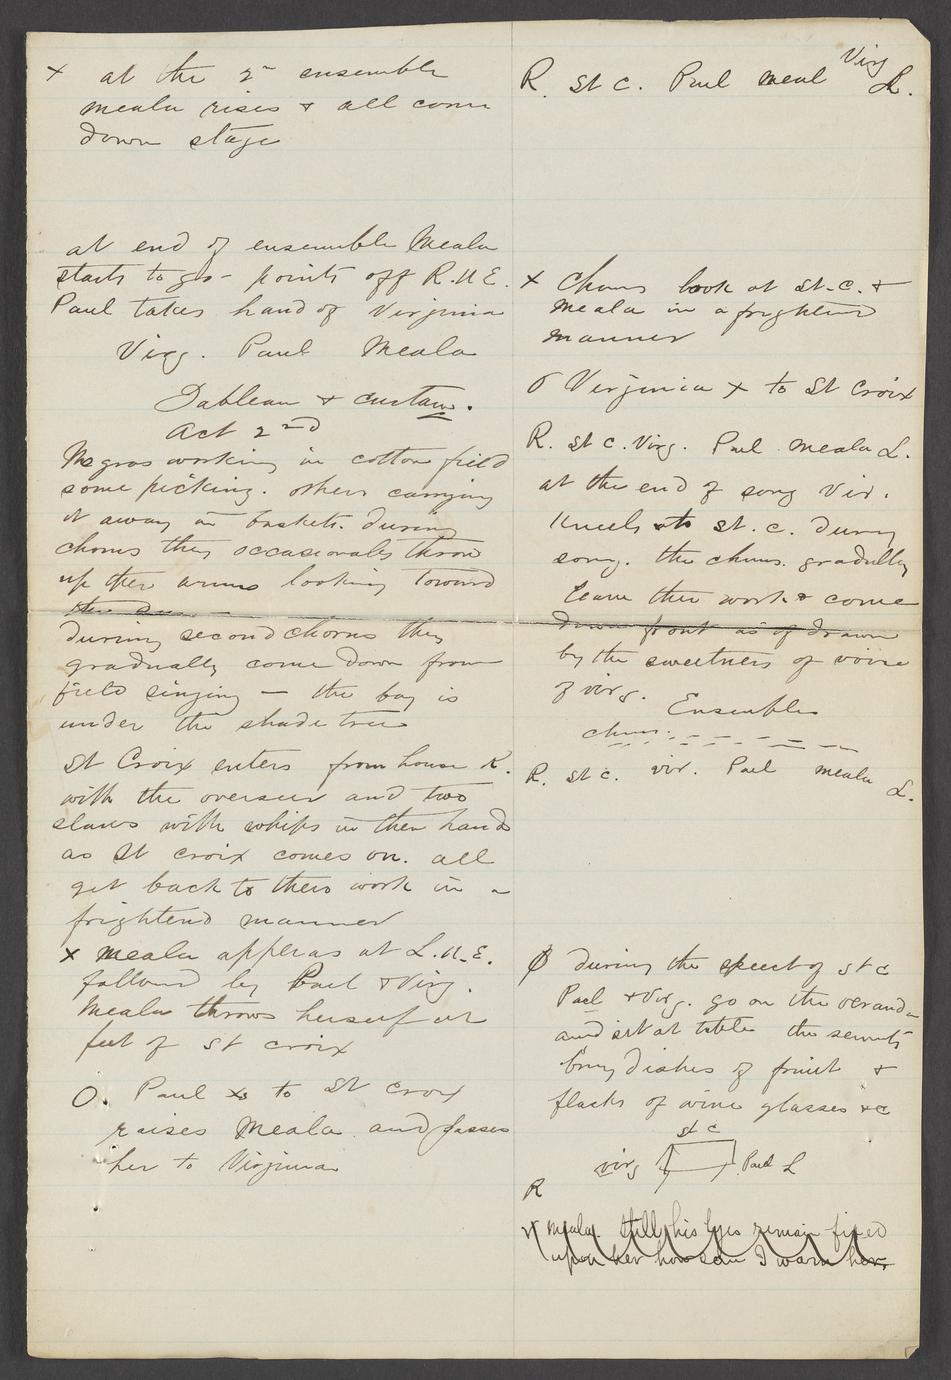 x at the 2nd ensemble
Meala rises & all come
down stage
at end of ensemble Meala
starts to go - points off R.U.E.
Paul takes hand of Virginia
Virg. Paul Meala
Tableau & curtain.
Act 2nd
Negros working in cotton field
some picking. others carrying
it away in baskets. During
chorus they occasionaly throw
up their arms looking toward
the sun
during second chorus they
gradually come down from
field singing — the boy is
under the shade tree
St Croix enters from house R.
with the overseer and two
slaves with whips in their hands
as St Croix comes on. all
get back to their work in a
frightend manner
x Meala apperas at L.U.E.
followd by Paul & Virg.
Meala throws herself at
feet of St Croix
O. Paul xs to St Croix
raises Meala and passes
her to Virginia
R. St C. Paul Meal Virg L.
x Chorus look at St. C. &
Meala in a frightend
manner
O Virginia x to St Croix
R. St C. Virg. Paul Meala L.
at the end of song Vir.
Kneels to St. C. During
song. the chorus. gradually
leave their work & come
down front as if drawn
by the sweetness of voice
of Virg.
Ensemble
chorus.
R. St C. Vir. Paul Meala L.
during the speect of St C
Paul & Virg. go on the verand
and sit at table the servts
bring dishes of fruit &
flasks of wine glasses &c
St C
Virg Paul L
R
Meala. Still his eyes remain fixed
upon her how can I warn her.